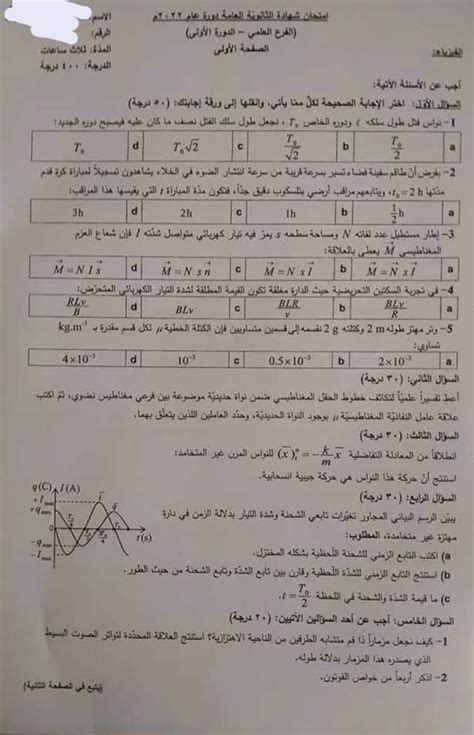 امتحان شهادة الثانوية العامة دورة عام ٢٠٢٢م
(الفرع العلمي – الدورة الأولى)
الصفحة الأولى
الاسم
الرقم:
المدة: ثلاث ساعات
الدرجة: ٤٠٠ درجة
الفيزياء:
أجب عن الأسئلة الآتية:
السؤال الأول: اختر الإجابة الصحيحة لكل مما يأتي، وانقلها إلى ورقة إجابتك: (٥٠ درجة)
1– نواس فتل طول سلكه ℓ ودوره الخاص T₀ ، نجعل طول سلك الفتل نصف ما كان عليه فيصبح دوره الجديد:
a T₀/2 b T₀/√2 c T₀√2 d T₀
2– بفرض أن طاقم سفينة فضاء تسير بسرعة قريبة من سرعة انتشار الضوء في الخلاء يشاهدون تسجيلاً لمباراة كرة قدم
مدتها t₀ = 2 h، ويتابعهم مراقب أرضي بتلسكوب دقيق جداً، فتكون مدة المباراة t التي يقيسها هذا المراقب:
a 1/2 h b 1h c 2h d 3h
3– إطار مستطيل عدد لفاته N ومساحة سطحه s يمر فيه تيار كهربائي متواصل شدته I فإن شعاع العزم
المغناطيسي M⃗ يعطى بالعلاقة:
4– في تجربة السكتين التحريضية حيث الدارة مغلقة تكون القيمة المطلقة لشدة التيار الكهربائي المتحرّض:
a BLv/R b BLR/v c BLv d RLv/B
5– وتر مهتز طوله 2 m وكتلته 2 g نقسمه إلى قسمين متساويين فإن الكتلة الخطية μ لكل قسم مقدرة بـ kg.m⁻¹
تساوي:
a 2×10⁻³ b 0.5×10⁻³ c 10⁻³ d 4×10⁻³
السؤال الثاني: (٣٠ درجة)
أعط تفسيراً علمياً لتكاثف خطوط الحقل المغناطيسي ضمن نواة حديدية موضوعة بين فرعي مغناطيس نضوي، ثم اكتب
علاقة عامل النفاذية المغناطيسية μ بوجود النواة الحديدية، وحدد العاملين اللذين يتعلق بهما.
السؤال الثالث: (٣٠ درجة)
انطلاقاً من المعادلة التفاضلية (x̄)″ₜ = −k/m x̄ للنواس المرن غير المتخامد:
استنتج أن حركة هذا النواس هي حركة جيبية انسحابية.
السؤال الرابع: (٣٠ درجة)
يبين الرسم البياني المجاور تغيرات تابعي الشحنة وشدة التيار بدلالة الزمن في دارة
مهتزة غير متخامدة، المطلوب:
a) اكتب التابع الزمني للشحنة اللحظية بشكله المختزل.
b) استنتج التابع الزمني للشدة اللحظية وقارن بين تابع الشدة وتابع الشحنة من حيث الطور.
c) ما قيمة الشدة والشحنة في اللحظة t = T₀/2.
q (C) I (A)
+I max
+q max
−q max
−I max
t (s)
السؤال الخامس: أجب عن أحد السؤالين الآتيين: (٢٠ درجة)
1– كيف نجعل مزماراً ذا فم متشابه الطرفين من الناحية الاهتزازية؟ استنتج العلاقة المحددة لتواتر الصوت البسيط
الذي يصدره هذا المزمار بدلالة طوله.
2– اذكر أربعاً من خواص الفوتون.
(يتبع في الصفحة الثانية)